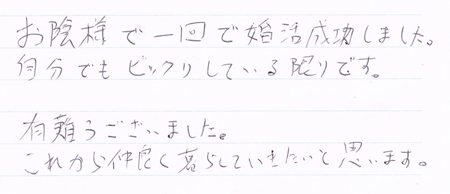 お陰様で一回で婚活成功しました。
自分でもビックリしている限りです。
有難うございました。
これから仲良く暮らしていきたいと思います。